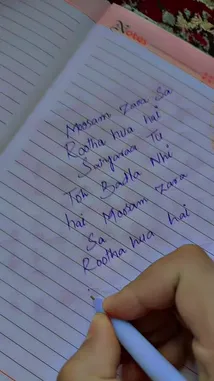 Notes
Mosam zara Sa
Rootha hua hai
Saiyaraa Tu
Toh Badla Nhi
hai Mosam zara
Sa
Rootha hua hai